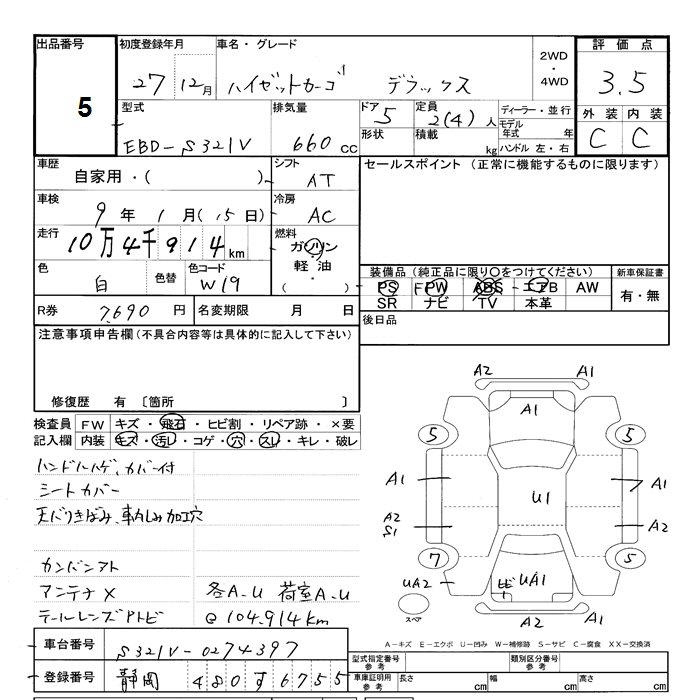 出品番号 初度登録年月 車名・グレード 2WD・4WD 評価点
5 27 12月 ハイゼットカーゴ デラックス 3.5
型式 排気量 ドア 定員 ディーラー・並行 外装 内装
EBD-S321V 660cc 5 2(4)人 モデル年式 年 C C
形状 積載 kg ハンドル 左・右
車歴 シフト セールスポイント (正常に機能するものに限ります)
自家用・( ) AT
車検 冷房
9年1月(15日) AC
走行 燃料
10万4千914km ガソリン・軽油・( )
色 色替 色コード 装備品 (純正品に限り〇をつけてください) 新車保証書
白 W19 PS PW ABS エアB AW 有・無
SR ナビ TV 本革
R券 7,690円 名変期限 月 日 後日品
注意事項申告欄(不具合内容等は具体的に記入して下さい)
修復歴 有 〔箇所 〕
検査員 FW キズ・飛石・ヒビ割・リペア跡・×要
記入欄 内装 キズ・汚レ・コゲ・穴・スレ・キレ・破レ
ハンドルハゲ、カバー付
シートカバー
天バリきばみ、車内しみ加工穴
カンバンアト
アンテナ× 各A-U 荷室A-U
テールレンズアトビ @104,914km
A2 A1
A1
5 5
A1 U1 A1
A2 S1 A2
7 5
UA2 ヒビ UA1
スペア A2 A1
A-キズ E-エクボ U-凹み W-補修跡 S-サビ C-腐食 XX-交換済
車台番号 S321V-0274397
型式指定番号 参考 類別区分番号 参考
登録番号 静岡 480す6755
車庫証明用 参考 長さ cm 幅 cm 高さ cm